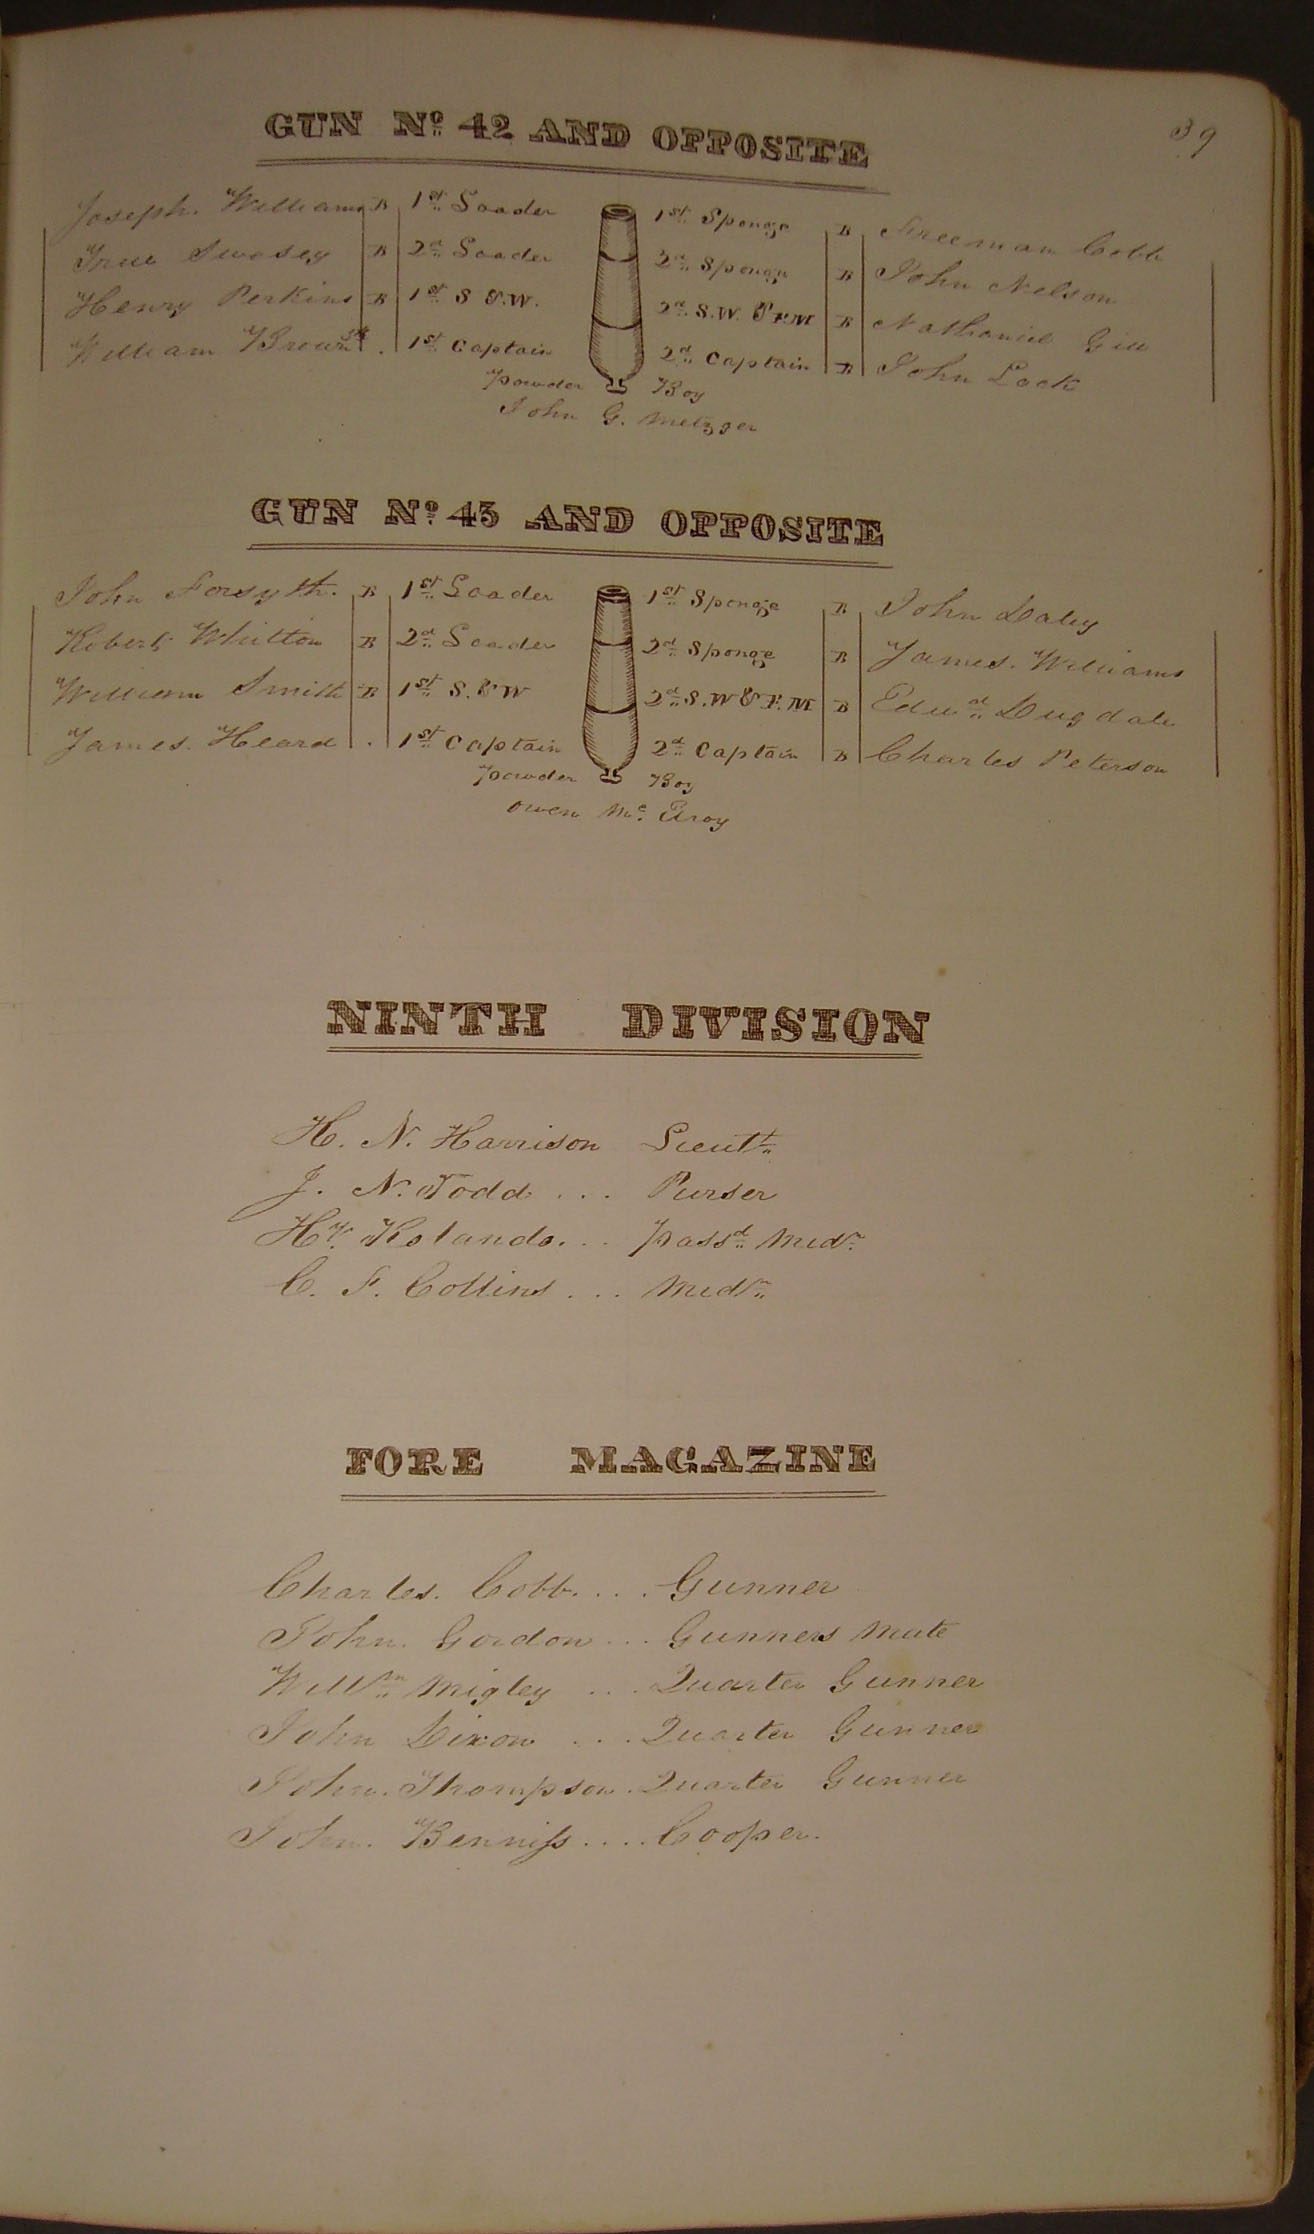 39
GUN No. 42 AND OPPOSITE
Joseph. Williams B 1st Loader 1st Sponge B Freeman Cobb
True Swasey B 2d Loader 2d Sponge B John Nelson
Henry Perkins B 1st S &.W. 2d S.W. & F.M B Nathaniel Gill
William Brown . 1st Captain 2d Captain B John Lock
Powder Boy
John G. Metzger
GUN No. 43 AND OPPOSITE
John Forsyth. B 1st Loader 1st Sponge B John Daley
Robert Whitton B 2d Loader 2d Sponge B James. Williams
William Smith B 1st S. & W 2d S.W & F.M B Edwd Dugdale
James. Heard . 1st Captain 2d Captain B Charles Peterson
Powder Boy
Owen Mc Elroy
NINTH DIVISION
H. N. Harrison Lieutt
J. N. Todd . . . Purser
Hy Rolando. . . Passd Midn
C. F. Collins . . . Midn
FORE MAGAZINE
Charles. Cobb. . . . Gunner
John. Gordon . . . Gunners Mate
Willm Migley . . . Quarter Gunner
John Dixon . . . Quarter Gunner
John. Thompson . Quarter Gunner
John. Benniss . . . . Cooper.